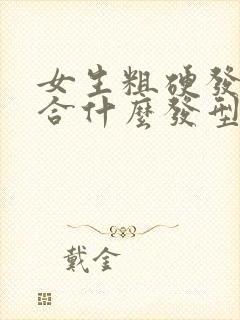 女生粗硬發
合什麼發型
戴金